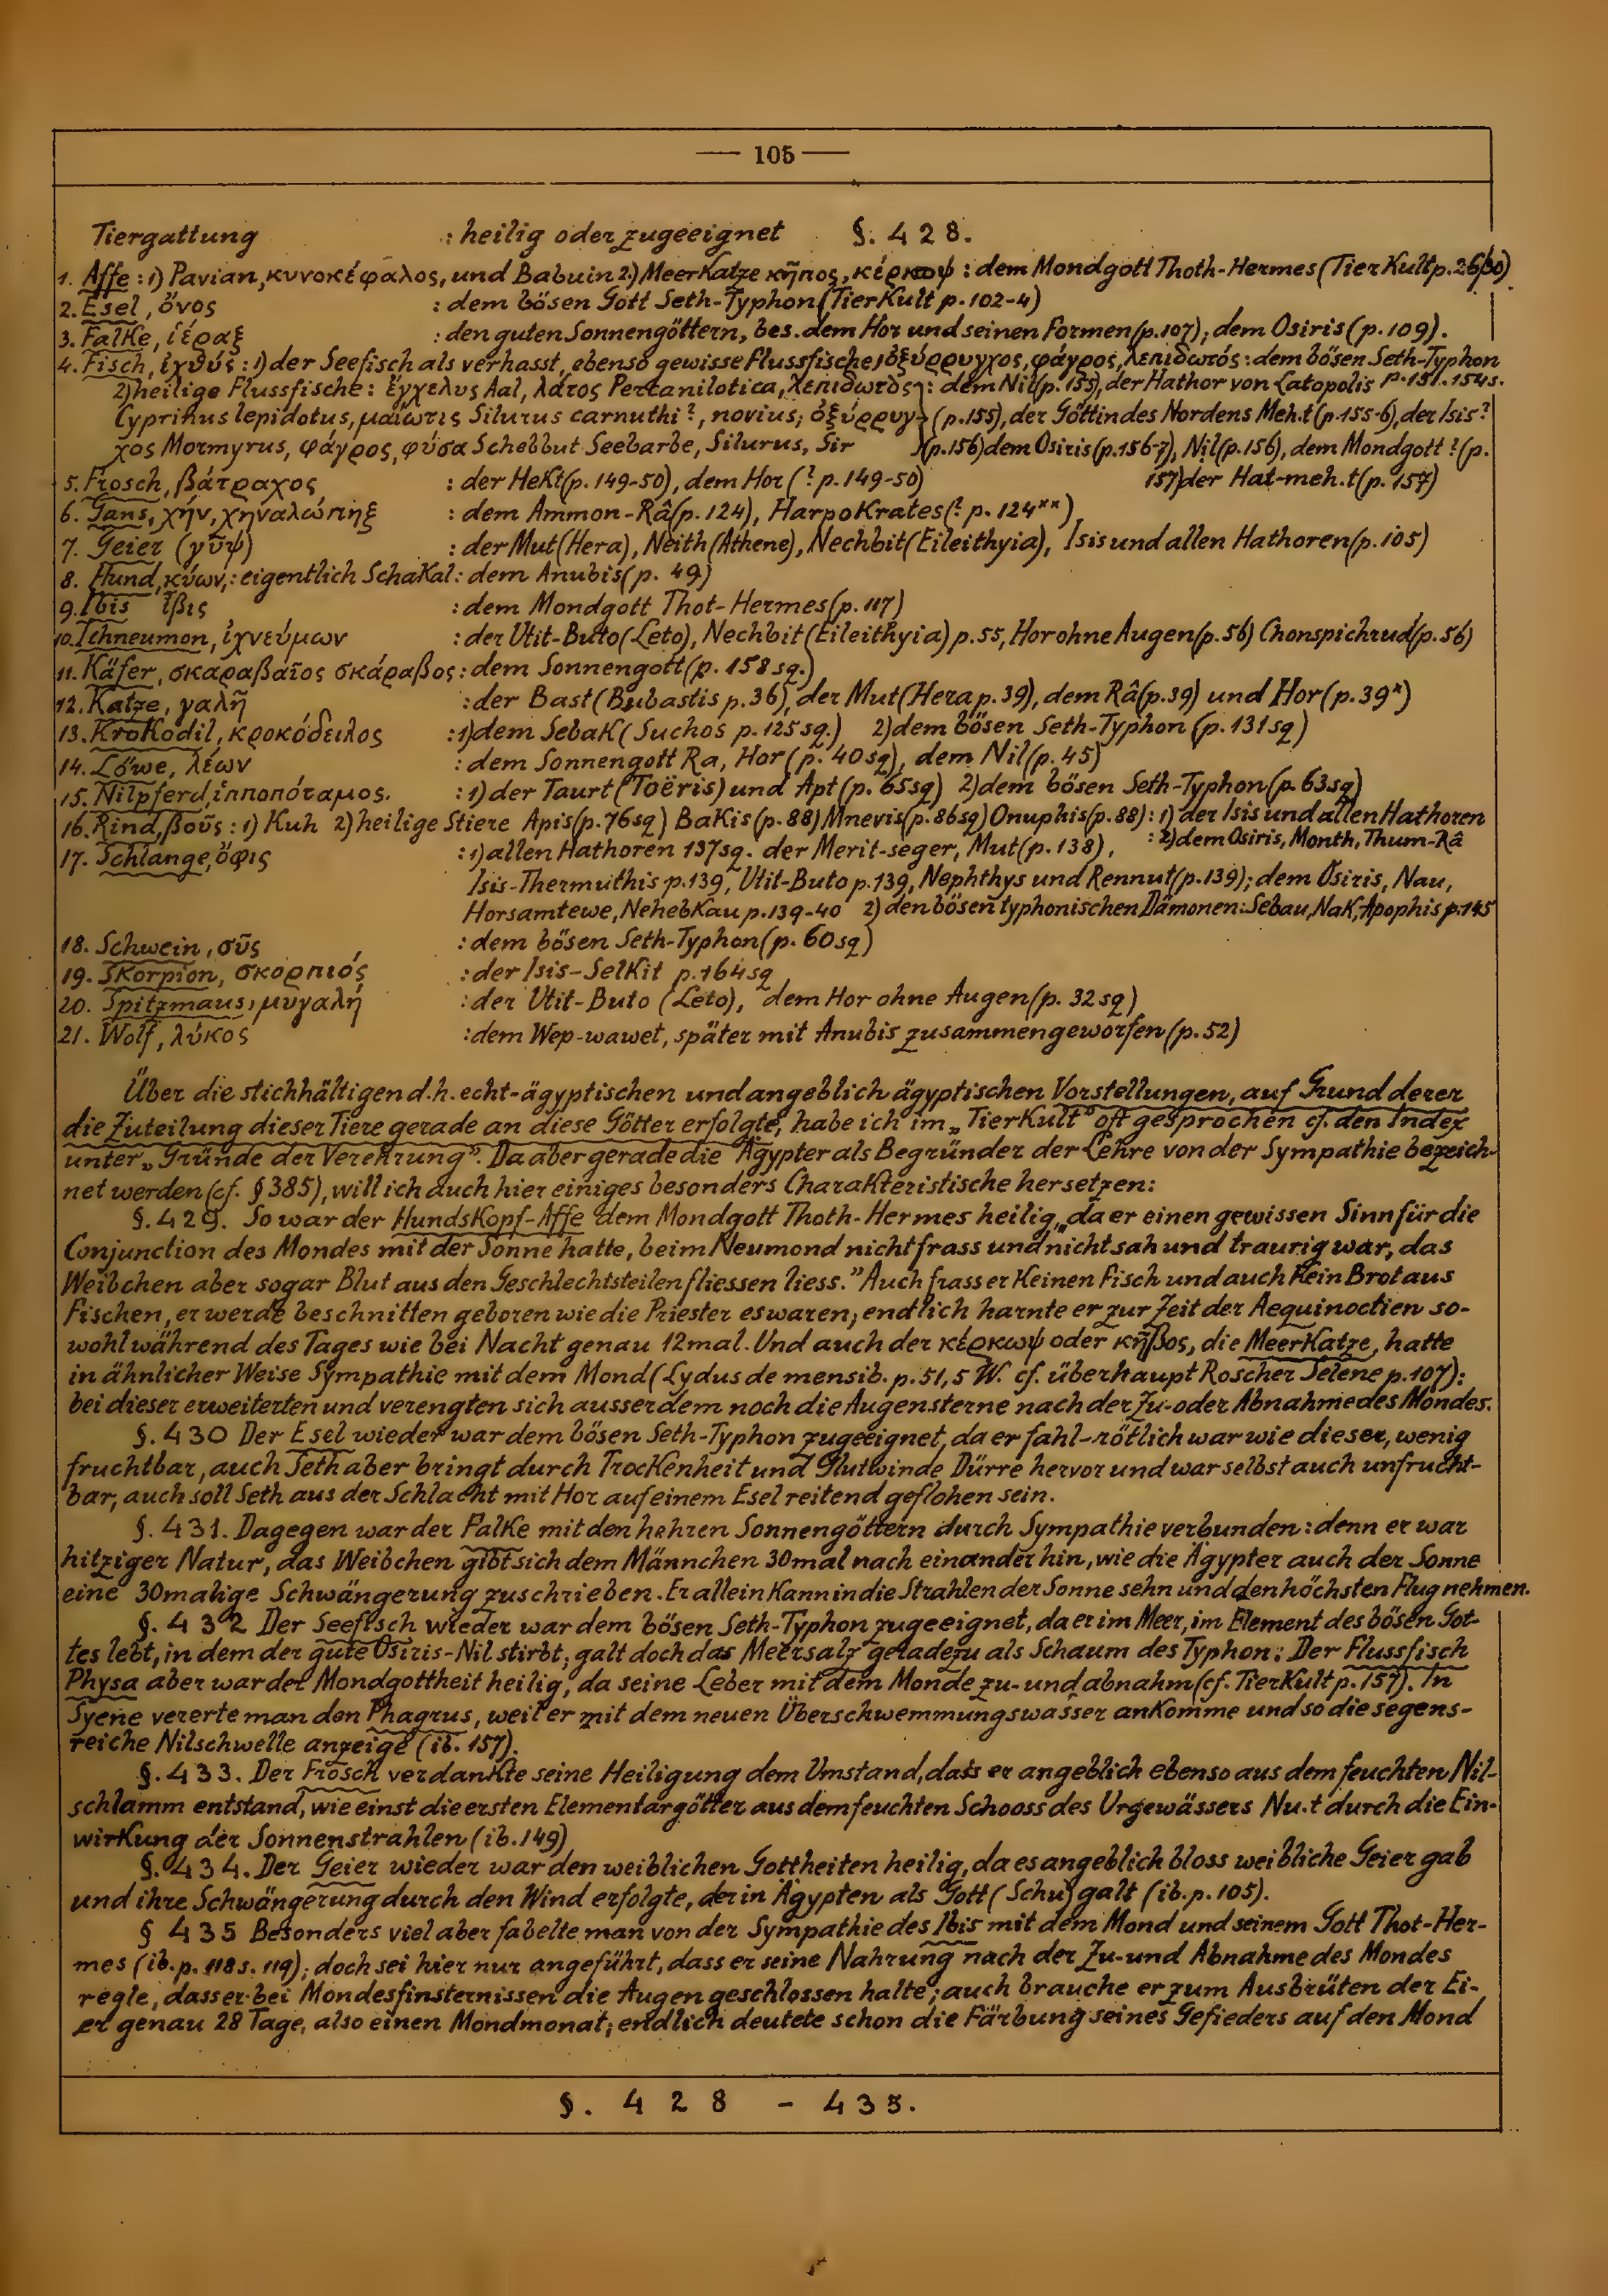 — 105 —
Tiergattung : heilig oder zugeeignet §. 428.
1. Affe : 1) Pavian, κυνοκέφαλος, und Babuin 2.) MeerKatze κῆπος, κέρκωψ : dem Mondgott Thoth-Hermes (TierKult p. 26/30)
2. Esel, ὄνος : dem bösen Gott Seth-Typhon (TierKult p. 102-4)
3. Falke, ἱέραξ : den guten Sonnengöttern, bes. dem Hor und seinen Formen (p. 107); dem Osiris (p. 109).
4. Fisch, ἰχθύς : 1) der Seefisch als verhasst, ebenso gewisse Flussfische, ὀξύρρυγχος, φάγρος, λεπιδωτός : dem bösen Seth-Typhon
2) heilige Flussfische : ἔγχελυς Aal, λάτος Percanilotica, λεπιδωτὸς : dem Nil (p. 155), der Hathor von Latopolis p. 151. 154s.
Cyprinus lepidotus, μαιώτις Silurus carnuthi ?, novius; ὀξύρρυγ- (p. 155), der Göttin des Nordens Meh.t (p. 155-6), der Isis ?
χος Mormyrus, φάγρος, φύσα Schebbut Seebarbe, Silurus, Sir (p. 156) dem Osiris (p. 156-7), Nil (p. 156), dem Mondgott ? (p.
5. Frosch, βάτραχος : der HeKt (p. 149-50), dem Hor (? p. 149-50) 157) der Hat-meh.t (p. 157)
6. Gans, χήν, χηναλώπηξ : dem Ammon-Râ (p. 124), HarpoKrates (? p. 124**)
7. Geier (γῦψ) : der Mut (Hera), Neith (Athene), Nechbit (Eileithyia), Isis und allen Hathoren (p. 105)
8. Hund, κύων, : eigentlich SchaKal : dem Anubis (p. 49)
9. Ibis ἶβις : dem Mondgott Thot-Hermes (p. 117)
10. Ichneumon, ἰχνεύμων : der Utit-Buto (Leto), Nechbit (Eileithyia) p. 55, Hor ohne Augen (p. 56) Chonspichrud (p. 56)
11. Käfer, σκαραβαῖος σκάραβος : dem Sonnengott (p. 158 sq.)
12. Katze, γαλῆ : der Bast (Bubastis p. 36), der Mut (Hera p. 39), dem Râ (p. 39) und Hor (p. 39*)
13. KroKodil, κροκόδειλος : 1) dem SebaK (Suchos p. 125 sq.) 2) dem bösen Seth-Typhon (p. 131 sq)
14. Löwe, λέων : dem Sonnengott Ra, Hor (p. 40 sq), dem Nil (p. 45)
15. Nilpferd, ἱπποπόταμος. : 1) der Taurt (Toëris) und Apt (p. 65 sq) 2) dem bösen Seth-Typhon (p. 63 sq)
16. Rind, βοῦς : 1) Kuh 2) heilige Stiere Apis (p. 76 sq) BaKis (p. 88) Mnevis (p. 86 sq) Onuphis (p. 88) : 1) der Isis und allen Hathoren
: 2) dem Osiris, Month, Thum-Râ
17. Schlange, ὄφις : 1) allen Hathoren 137 sq. der Merit-seger, Mut (p. 138),
Isis-Thermuthis p. 139, Utit-Buto p. 139, Nephthys und Rennut (p. 139); dem Osiris, Nau,
Horsamtewe, NehebKau p. 139-40 2) den bösen typhonischen Dämonen: Sebau, NaK, Apophis p. 145
18. Schwein, σῦς : dem bösen Seth-Typhon (p. 60 sq)
19. SKorpion, σκορπιός : der Isis-SelKit p. 164 sq
20. Spitzmaus, μυγαλή : der Utit-Buto (Leto), dem Hor ohne Augen (p. 32 sq)
21. Wolf, λύκος : dem Wep-wawet, später mit Anubis zusammengeworfen (p. 52)
Über die stichhältigen d.h. echt-ägyptischen und angeblich ägyptischen Vorstellungen, auf Grund derer
die Zuteilung dieser Tiere gerade an diese Götter erfolgte, habe ich im „TierKult" oft gesprochen cf. den Index
unter „Gründe der Verehrung". Da aber gerade die Ägypter als Begründer der Lehre von der Sympathie bezeich-
net werden (cf. § 385), will ich auch hier einiges besonders CharaKteristische hersetzen:
§. 429. So war der HundsKopf-Affe dem Mondgott Thoth-Hermes heilig, „da er einen gewissen Sinn für die
Conjunction des Mondes mit der Sonne hatte, beim Neumond nicht frass und nicht sah und traurig war, das
Weibchen aber sogar Blut aus den Geschlechtsteilen fliessen liess." Auch frass er Keinen Fisch und auch Kein Brot aus
Fischen, er werde beschnitten geboren wie die Priester es waren; endlich harnte er zur Zeit der Aequinoctien so-
wohl während des Tages wie bei Nacht genau 12 mal. Und auch der κέρκωψ oder κῆβος, die MeerKatze, hatte
in ähnlicher Weise Sympathie mit dem Mond (Lydus de mensib. p. 51, 5 W. cf. überhaupt Roscher Selene p. 107):
bei dieser erweiterten und verengten sich ausserdem noch die Augensterne nach der Zu- oder Abnahme des Mondes.
§. 430 Der Esel wieder war dem bösen Seth-Typhon zugeeignet, da er fahl-rötlich war wie dieser, wenig
fruchtbar, auch Seth aber bringt durch TrocKenheit und Glutwinde Dürre hervor und war selbst auch unfrucht-
bar, auch soll Seth aus der Schlacht mit Hor auf einem Esel reitend geflohen sein.
§. 431. Dagegen war der FalKe mit den hehren Sonnengöttern durch Sympathie verbunden: denn er war
hitziger Natur, das Weibchen gibt sich dem Männchen 30 mal nach einander hin, wie die Ägypter auch der Sonne
eine 30malige Schwängerung zuschrieben. Er allein Kann in die Strahlen der Sonne sehn und den höchsten Flug nehmen.
§. 432 Der Seefisch wieder war dem bösen Seth-Typhon zugeeignet, da er im Meer, im Element des bösen Got-
tes lebt, in dem der gute Osiris-Nil stirbt; galt doch das Meersalz geradezu als Schaum des Typhon: Der Flussfisch
Physa aber war der Mondgottheit heilig, da seine Leber mit dem Monde zu- und abnahm (cf. TierKult p. 157). In
Syene vererte man den Phagrus, weil er mit dem neuen Überschwemmungswasser anKomme und so die segens-
reiche Nilschwelle anzeige (ib. 157).
§. 433. Der Frosch verdanKte seine Heiligung dem Umstand, dass er angeblich ebenso aus dem feuchten Nil-
schlamm entstand, wie einst die ersten Elementargötter aus dem feuchten Schooss des Urgewässers Nu.t durch die Ein-
wirKung der Sonnenstrahlen (ib. 149)
§. 434. Der Geier wieder war den weiblichen Gottheiten heilig, da es angeblich bloss weibliche Geier gab
und ihre Schwängerung durch den Wind erfolgte, der in Ägypten als Gott (Schu) galt (ib. p. 105).
§ 435 Besonders viel aber fabelte man von der Sympathie des Ibis mit dem Mond und seinem Gott Thot-Her-
mes (ib. p. 118 s. 119); doch sei hier nur angeführt, dass er seine Nahrung nach der Zu- und Abnahme des Mondes
regle, dass er bei Mondesfinsternissen die Augen geschlossen halte; auch brauche er zum Ausbrüten der Ei-
er genau 28 Tage, also einen Mondmonat; endlich deutete schon die Färbung seines Gefieders auf den Mond
§. 428 - 435.